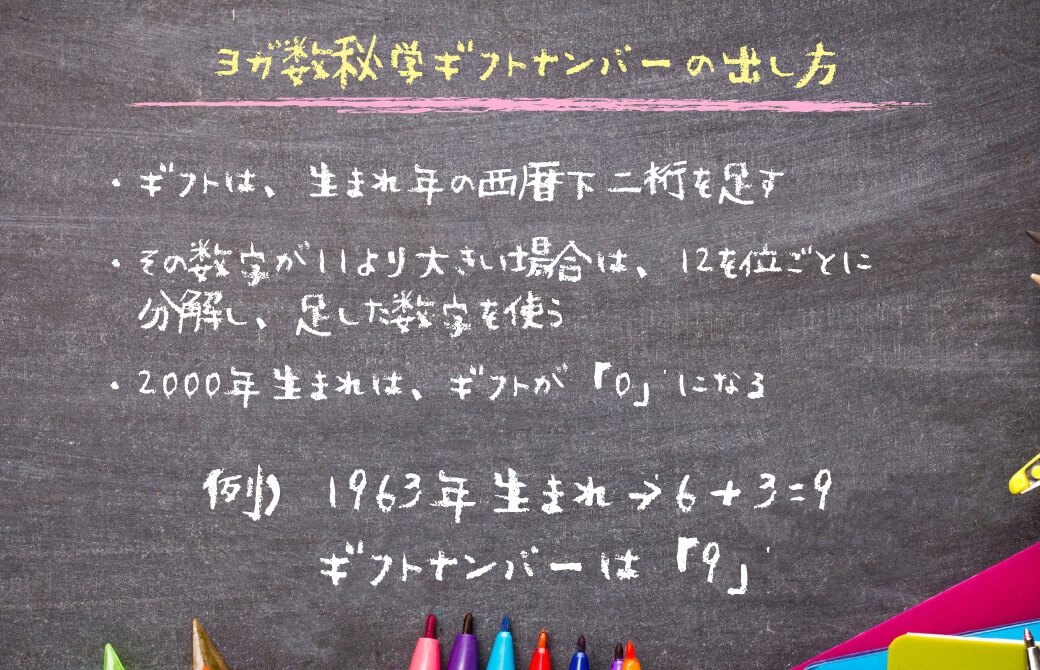 ヨガ数秘学ギフトナンバーの出し方
・ギフトは、生まれ年の西暦下二桁を足す
・その数字が11より大きい場合は、12を位ごとに
分解し、足した数字を使う
・2000年生まれは、ギフトが「0」になる
例) 1963年生まれ→6+3=9
ギフトナンバーは「9」